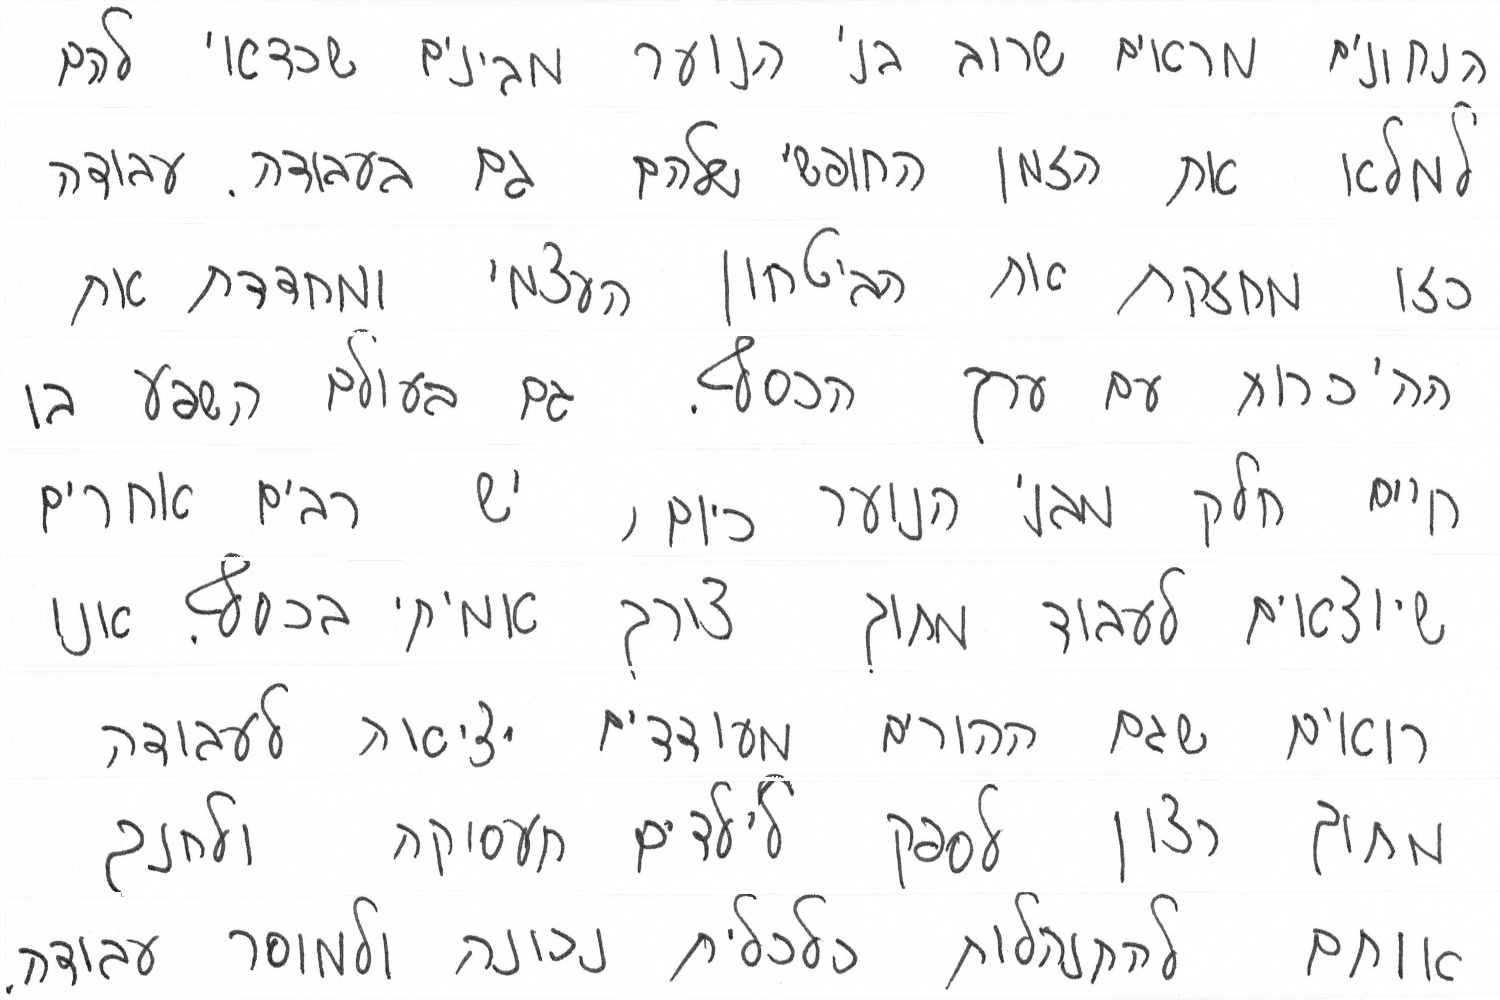 הנחונים מראים שרוב בני הנוער מבינים שכדאי להם
למלא את הזמן החופשי שלהם גם בעבודה. עבודה
כזו מחזקת את הביטחון העצמי ומחדדת את
ההיכרות עם ערך הכסף. גם בעולם השפע בו
חיים חלק מבני הנוער כיום, יש רבים אחרים
שיוצאים לעבוד מתוך צורך אמיתי בכסף. אנו
רואים שגם ההורים מעודדים יציאה לעבודה
מתוך רצון לספק לילדים תעסוקה ולחנך
אותם להתנהלות כלכלית נכונה ולמוסר עבודה.